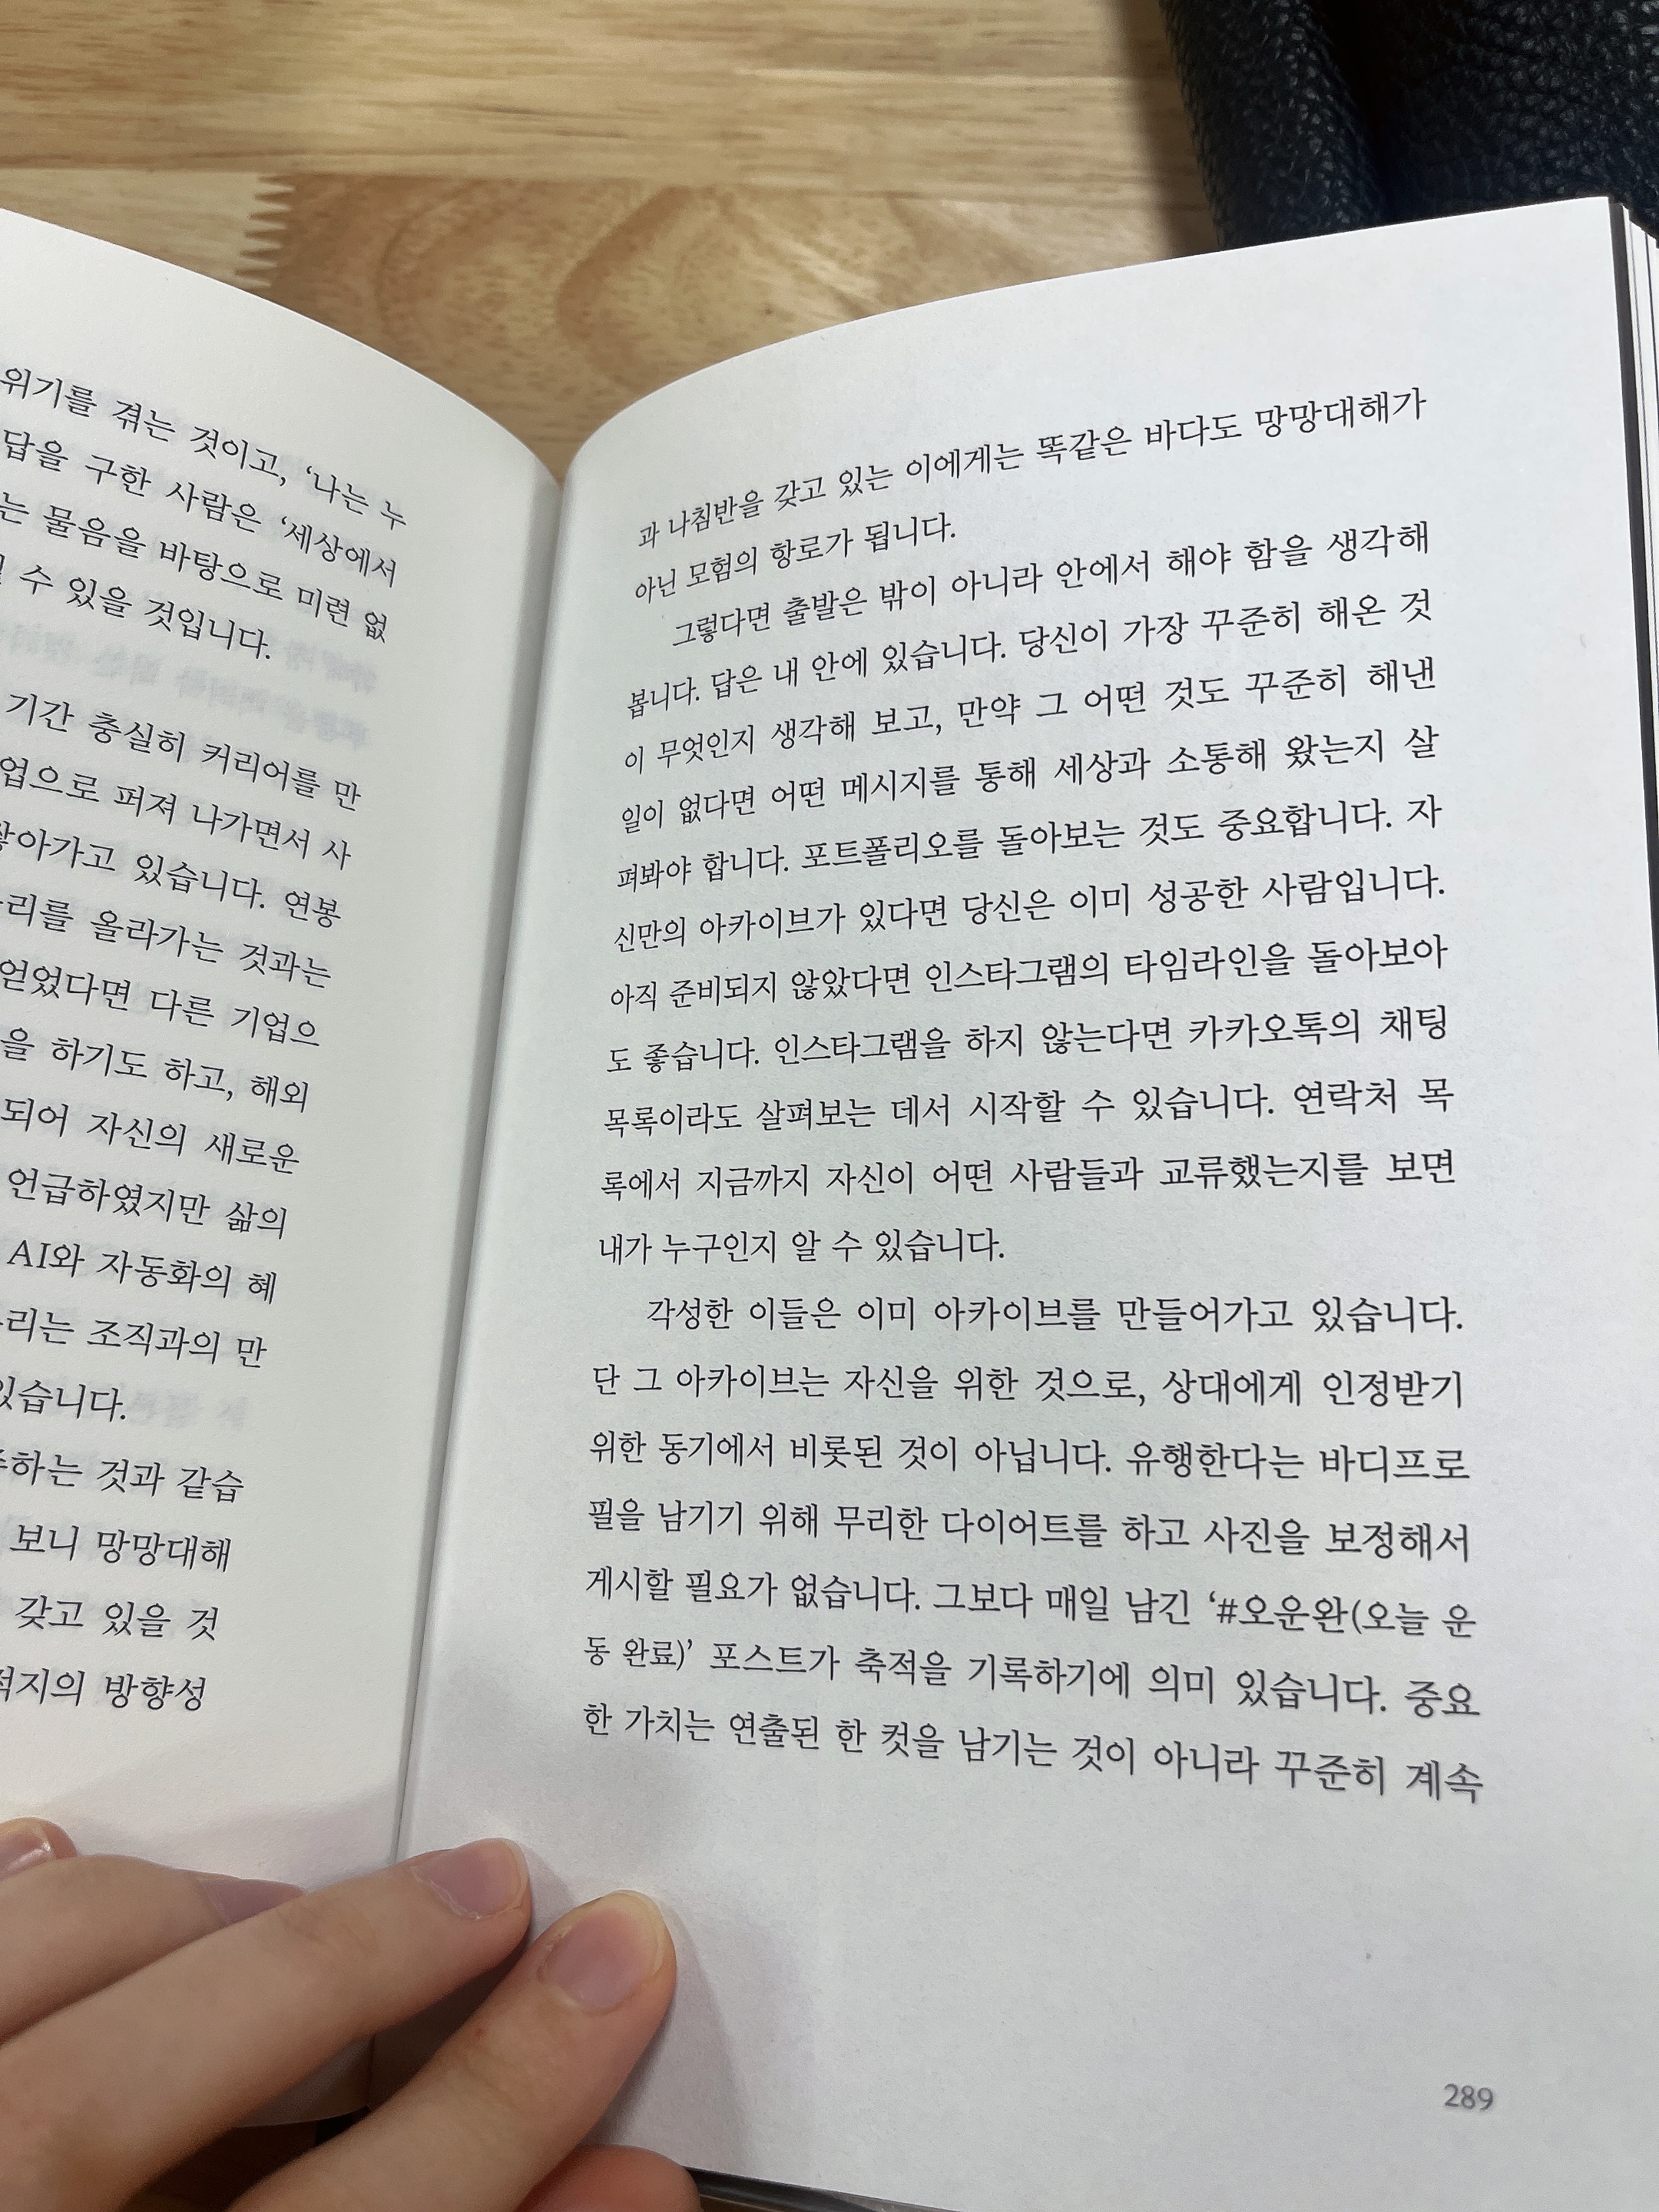 위기를 겪는 것이고, ‘나는 누
답을 구한 사람은 ‘세상에서
는 물음을 바탕으로 미련 없
수 있을 것입니다.
기간 충실히 커리어를 만
업으로 퍼져 나가면서 사
있습니다. 연봉
올라가는 것과는
얻었다면 다른 기업으
을 하기도 하고, 해외
되어 자신의 새로운
언급하였지만 삶의
AI와 자동화의 혜
조직과의 만
있습니다.
것과 같습
보니 망망대해
갖고 있을 것
방향성
과 나침반을 갖고 있는 이에게는 똑같은 바다도 망망대해가
아닌 모험의 항로가 됩니다.
그렇다면 출발은 밖이 아니라 안에서 해야 함을 생각해
봅니다. 답은 내 안에 있습니다. 당신이 가장 꾸준히 해온 것
이 무엇인지 생각해 보고, 만약 그 어떤 것도 꾸준히 해낸
일이 없다면 어떤 메시지를 통해 세상과 소통해 왔는지 살
펴봐야 합니다. 포트폴리오를 돌아보는 것도 중요합니다. 자
신만의 아카이브가 있다면 당신은 이미 성공한 사람입니다.
아직 준비되지 않았다면 인스타그램의 타임라인을 돌아보아
도 좋습니다. 인스타그램을 하지 않는다면 카카오톡의 채팅
목록이라도 살펴보는 데서 시작할 수 있습니다. 연락처 목
록에서 지금까지 자신이 어떤 사람들과 교류했는지를 보면
내가 누구인지 알 수 있습니다.
각성한 이들은 이미 아카이브를 만들어가고 있습니다.
단 그 아카이브는 자신을 위한 것으로, 상대에게 인정받기
위한 동기에서 비롯된 것이 아닙니다. 유행한다는 바디프로
필을 남기기 위해 무리한 다이어트를 하고 사진을 보정해서
게시할 필요가 없습니다. 그보다 매일 남긴 ‘#오운완(오늘 운
동 완료)’ 포스트가 축적을 기록하기에 의미 있습니다. 중요
한 가치는 연출된 한 컷을 남기는 것이 아니라 꾸준히 계속
289